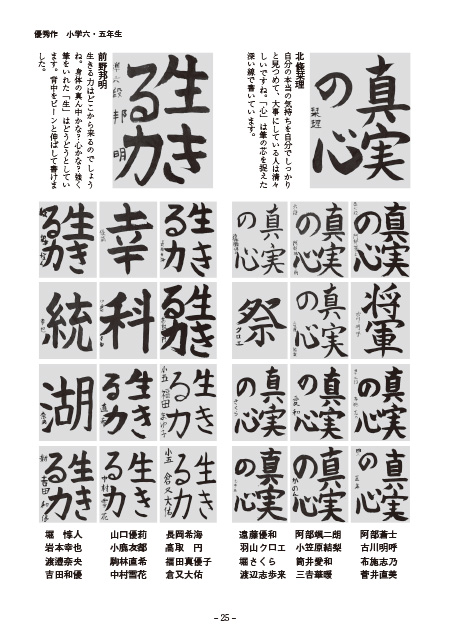 優秀作 小学六・五年生
真実の心
北條栞理
自分の本当の気持ちを自分でしっかり
と見つめて、大事にしている人は清々
しいですね。「心」は筆の芯を捉えた
深い線で書いています。
生きる力
前野邦明
生きる力はどこから来るのでしょう
ね。身体の真ん中かな？心かな？強く
筆をいれた「生」はどうどうとしてい
ます。背中をピーンと伸ばして書けま
した。
真実の心
真実の心
真実の心
将軍
真実の心
祭
クロエ
真実の心
真実の心
真実の心
真実の心
真実の心
真実の心
生きる力
幸
生きる力
生きる力
科
統
生きる力
小五 福田
生きる力
湖
生きる力
小五 倉又大佑
生きる力
中村雪花
生きる力
吉田和優
阿部蒼士
古川明呼
布施志乃
菅井直美
阿部颯二朗
小笠原結梨
筒井愛和
三𠮷華暖
遠藤優和
羽山クロエ
堀さくら
渡辺志歩来
長岡希海
高取 円
福田真優子
倉又大佑
山口優莉
小鹿友郁
駒林直希
中村雪花
堀 惇人
岩本幸也
渡邉奈央
吉田和優
－25－